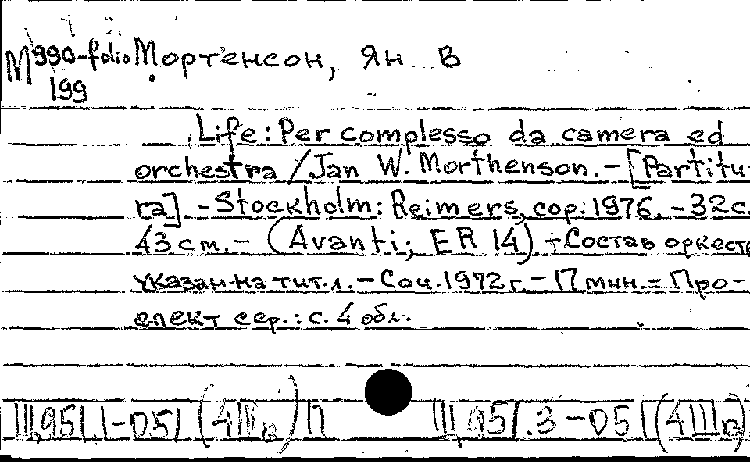 М990-folio Мортенсон, Ян В
199
Life: Per complesso da camera ed
orchestra / Jan W. Morthenson. - [Partitu-
ra] - Stockholm: Reimers, cop. 1976. - 32 с.
43 см. - (Avanti; ER 14) - Состав оркест
указан на тит.л. - Соч. 1972 г. - 17 мин. - Про-
спект сер.: с. 4 обл.
Ш,951.1-051 (4Шв) П Ш,951.3-051 (4Шв)